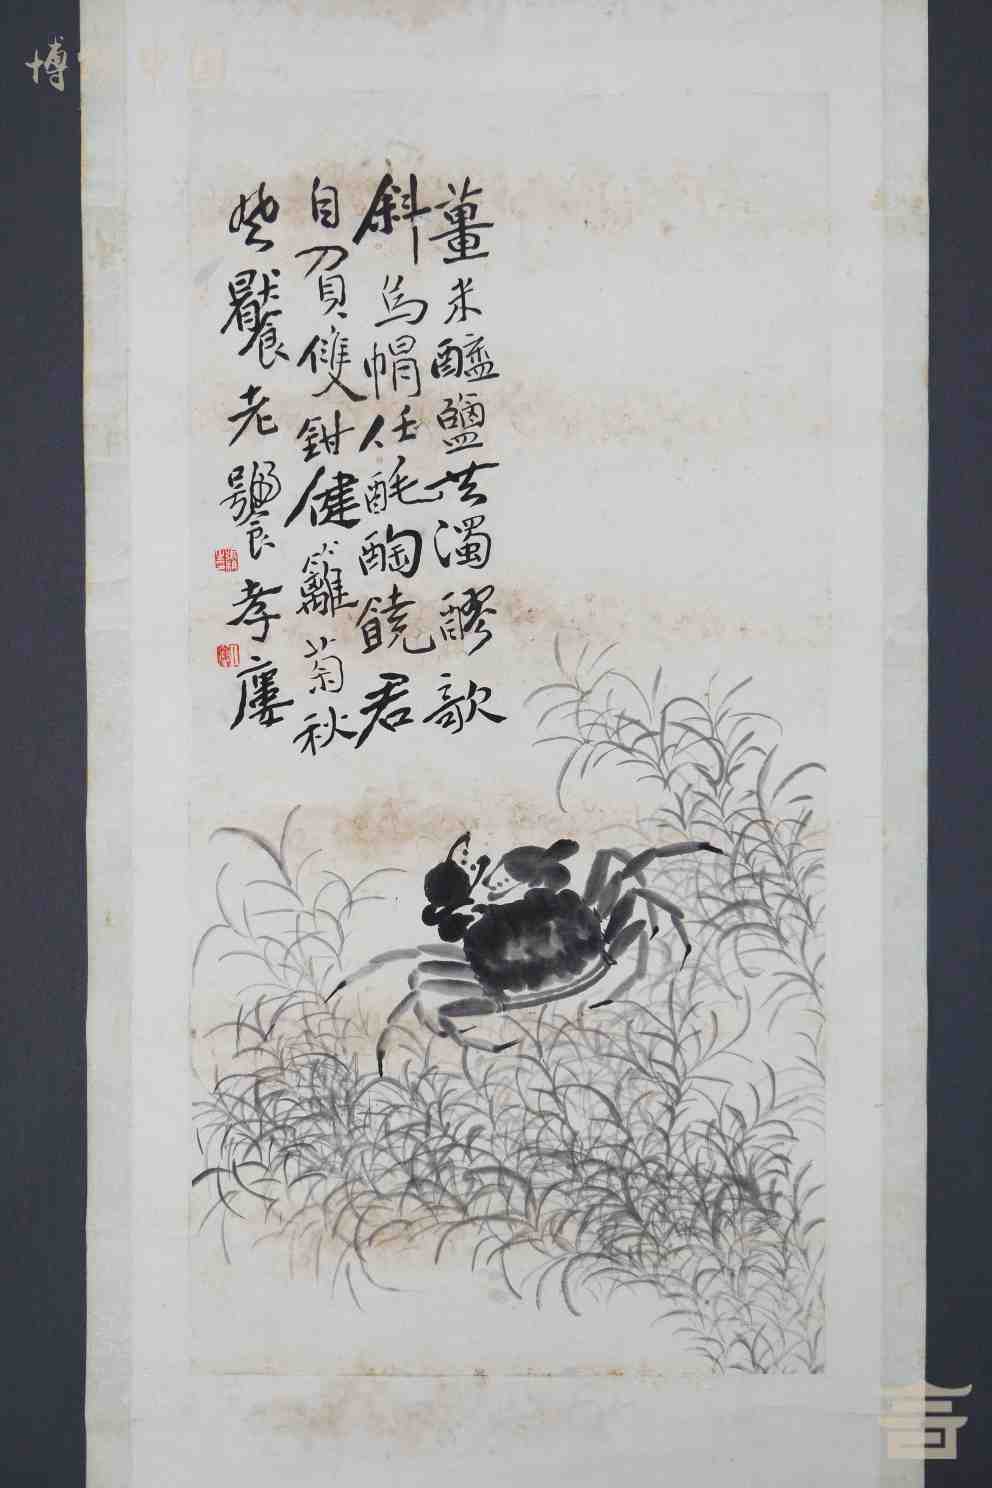 薑米醯鹽共濁醪歌
斜烏帽任酕醄饒君
自負雙鉗健籬菊秋
老饕孝廔
博
中國